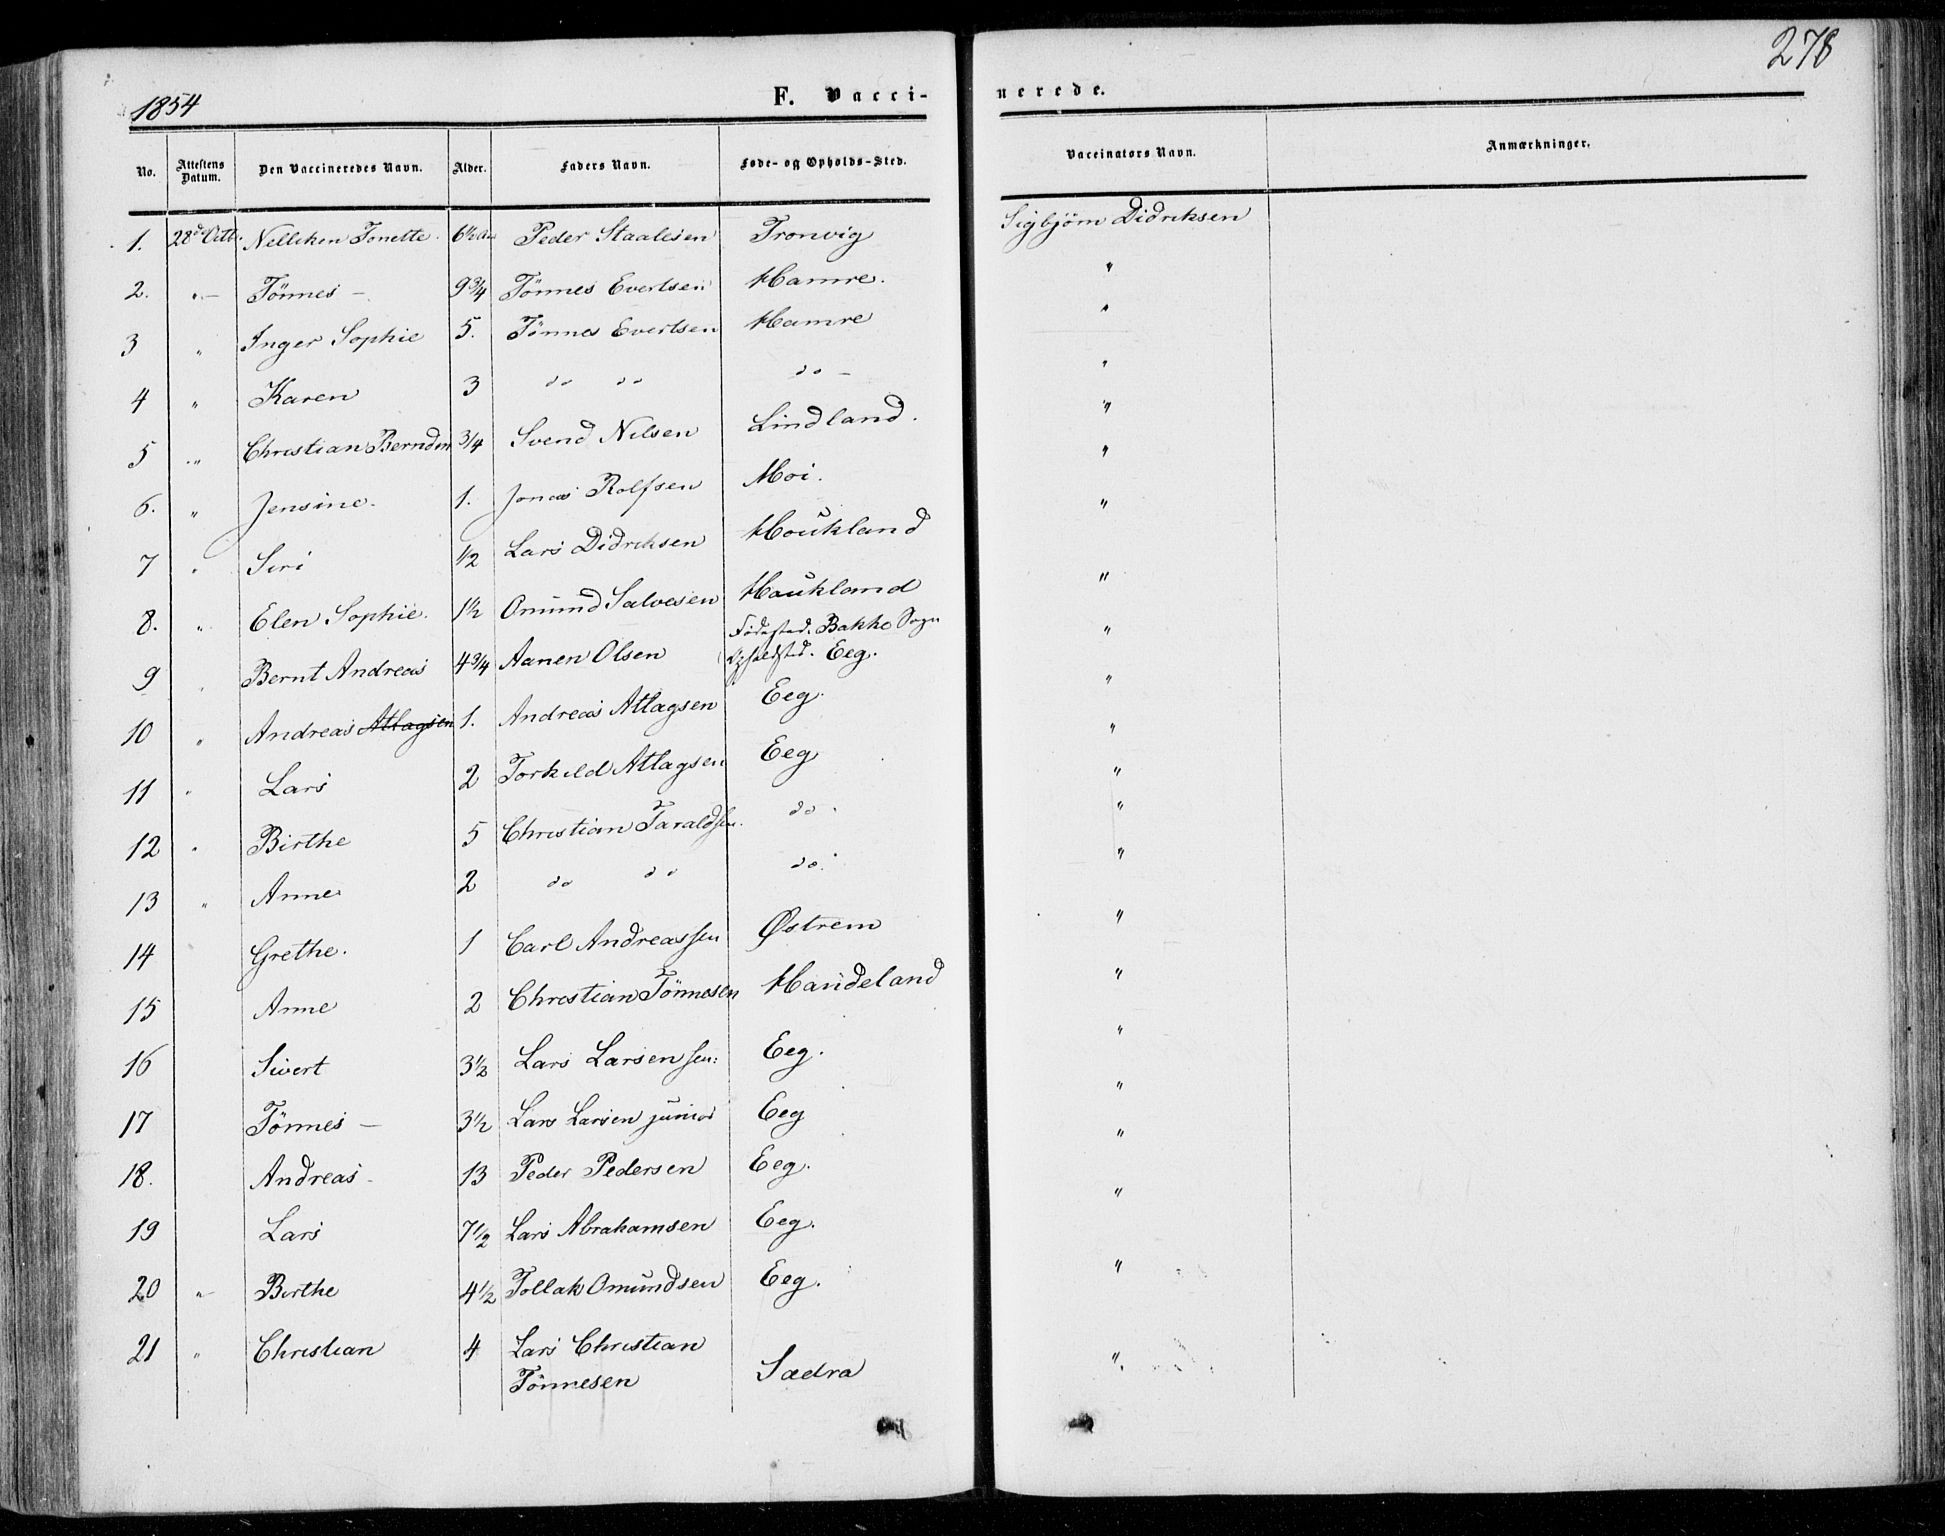 278
1854 F. Vacci- nerede.
No. Attestens Datum. Den Vaccineredes Navn. Alder. Faders Navn. Føde- og Opholds-Sted. Vaccinators Navn. Anmærkninger.
1. 28de Octb. Nelliken Tonette. 6 1/2 Peder Staalesen Tronvig Sigbjørn Didriksen
2. " - Tönnes - 9 3/4 Tönnes Evertsen Hamre. "
3 " Inger Sophie 5. Tönnes Evertsen Hamre "
4 " Karen 3 do do do - "
5 " Christian Berndin 3/4 Svend Nilsen Lindland. "
6. " Jensine. 1. Jonas Rolfsen Moi. "
7 " Siri 1/2 Lars Didriksen Houkland "
8. " Elen Sophie. 1 1/2 Omund Salvesen Haukland "
9 " Bernt Andreas 4 3/4 Aanen Olsen Fødested. Bakke Sogn
Opholdsted. Eeg. "
10 " Andreas Atlagsen 1. Andreas Atlagsen Eeg. "
11 " Lars 2 Torkild Atlagsen Eeg "
12 " Birthe 5 Christian Taraldsen. do. "
13 " Anne 2 do do do. "
14 Grethe. 1 Carl Andreassen Østrem "
15 Anne 2 Christian Tönnesen Haudeland "
16 Sivert 3 1/2 Lars Larsen sen: Eeg. "
17 Tönnes - 3 1/2 Lars Larsen junior Eeg "
18. Andreas - 13 Peder Pedersen Eeg. "
19 Lars 7 1/2 Lars Abrahamsen Eeg. "
20 " Birthe 4 1/2 Tollak Omundsen Eeg. "
21 " Christian 4 Lars Christian
Tönnesen Sædra ".